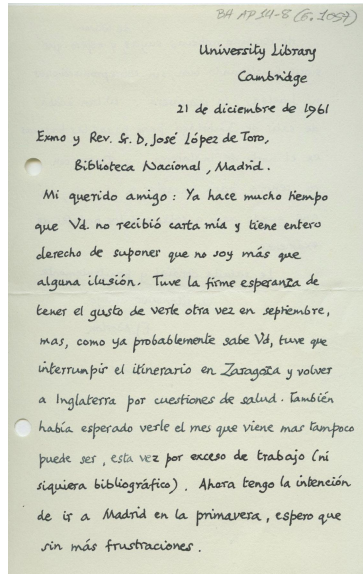 BA AP 14-8 (G. 1057)
University Library
Cambridge
21 de diciembre de 1961
Exmo y Rev. Sr. D. José López de Toro,
Biblioteca Nacional, Madrid.
Mi querido amigo: Ya hace mucho tiempo
que Vd. no recibió carta mía y tiene entero
derecho de suponer que no soy más que
alguna ilusión. Tuve la firme esperanza de
tener el gusto de verle otra vez en septiembre,
mas, como ya probablemente sabe Vd, tuve que
interrunpir el itinerario en Zaragoza y volver
a Inglaterra por cuestiones de salud. También
había esperado verle el mes que viene mas tampoco
puede ser, esta vez por exceso de trabajo (ni
siquiera bibliográfico). Ahora tengo la intención
de ir a Madrid en la primavera, espero que
sin más frustraciones.